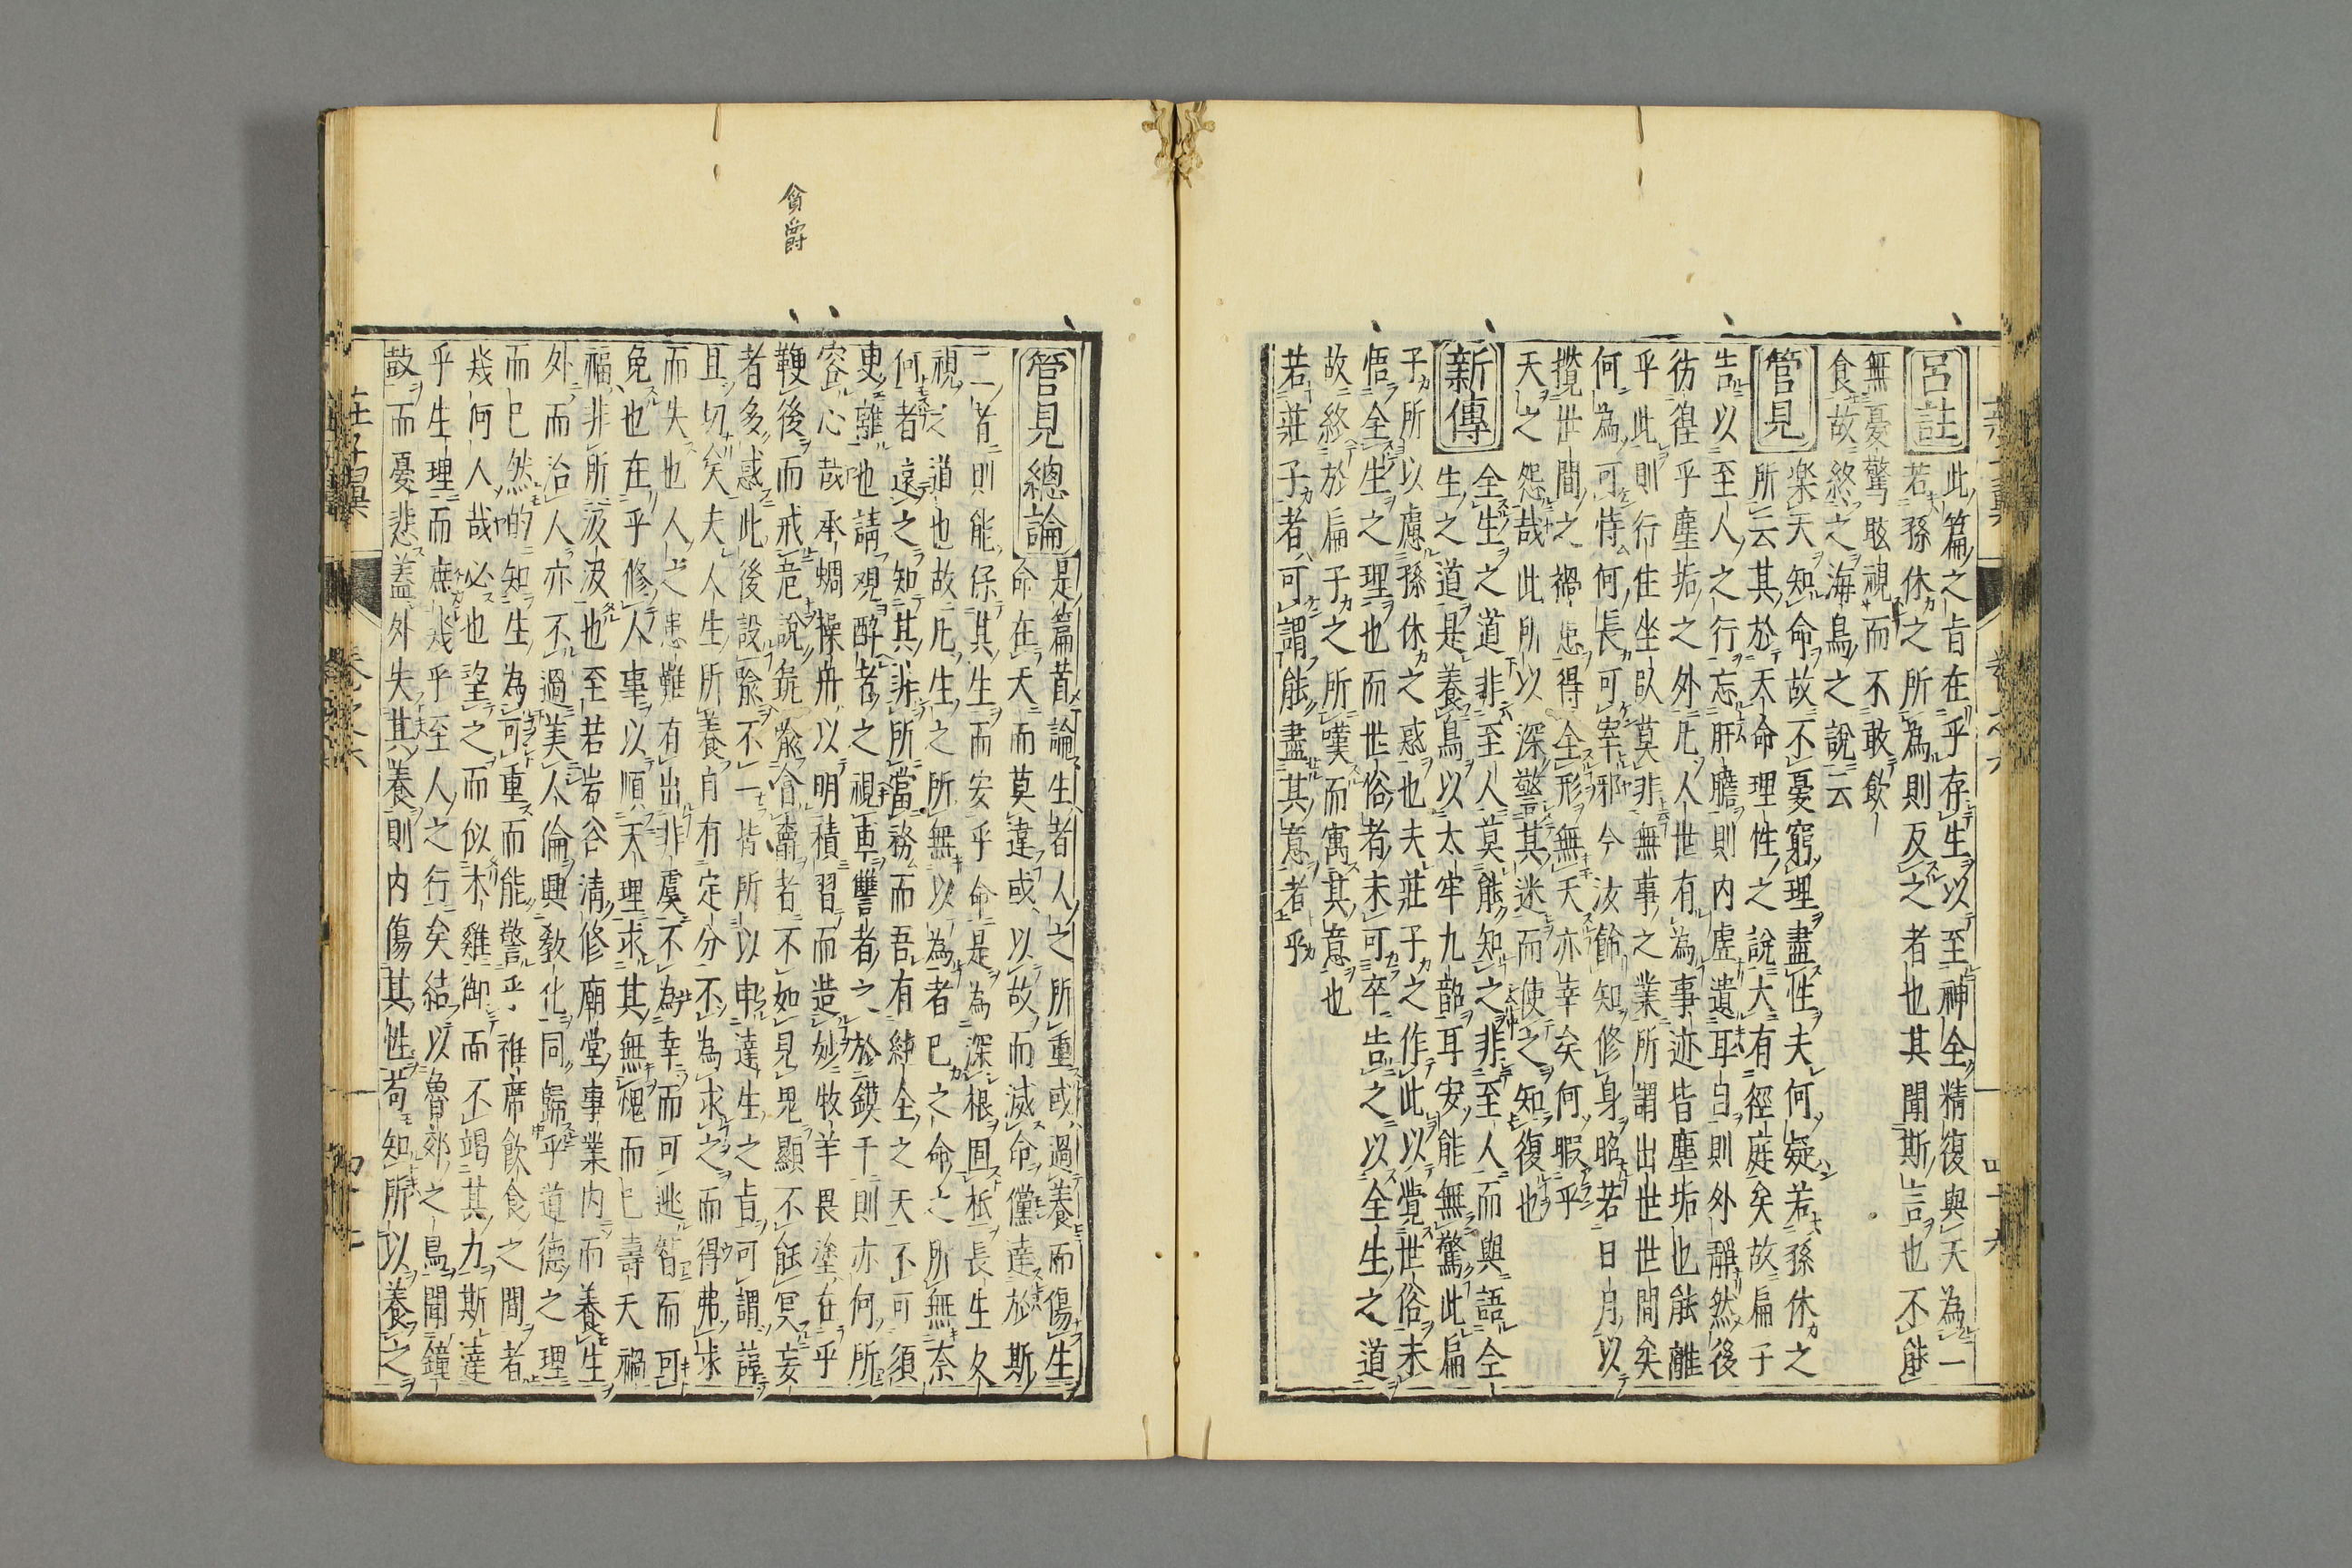 呂註
此篇之旨在乎存生以至神全精復與天為一
若孫休之所為則反之者也其聞斯言也不能
無憂驚眩視而不敢飲
食故終之海鳥之說云
管見
楽天知命故不憂窮理盡性夫何疑若孫休之
所云其於天命理性之說大有徑庭矣故扁子
告以至人之行忘肝膽則内虚遺耳目則外𮅕然後
彷徨乎塵垢之外凡人世有為事迹皆塵垢也能離
乎此則行住坐臥莫非無事之業所謂出世世間矣
何為可恃何長可宰邪今汝飾知修身昭若日月以
攬世間之禍患得全形無夭亦幸矣何暇乎
天之怨哉此所以深警其迷而使之知復也
新傳
全生之道非至人莫能知之非至人而與語全
生之道是養鳥以太牢九韶耳安能無驚此扁
子所以慮孫休之惑也夫莊子之作此以覺世俗未
悟全生之理也而世俗者未可卒告之以全生之道
故終於扁子之所嘆而寓其意也
若莊子者可謂能盡其意者乎
貪爵
管見總論
是篇首論生者人之所重或過養而傷生
命在天而莫違或以故而滅命儻達於斯
二者則能保其生而安乎命是為深根固柢長生久
視之道也故凡生之所無以為者已之命之所無奈
何者遠之知其非所當務而吾有純全之天不可須
臾離也請觀醉者之視車讐者之於鏌干則亦何所
容心哉承蜩操舟以明積習而造妙牧羊畏塗在乎
鞭後而戒危說彘喩貪爵者不如見鬼顯不能冥妄
者多惑此後設喩不一皆所以申達生之旨可謂諄
且切矣夫人生所養自有定分不為求之而得弗求
而失也人之患難有出非虞不為幸而可逃智而可
免也在乎修人事以順天理求其無愧而已壽夭禍
福非所汲汲也至若岩谷清修廟堂事業内而養生
外而治人亦不過美人倫興教化同歸乎道德之理
而已然的知生為可重而能警乎袵席飲食之間者
幾何人哉必也望之而似木雞御而不竭其力斯達
乎生理而庶幾乎至人之行矣結以魯郊之鳥聞鐘
鼓而憂悲蓋外失其養則内傷其性苟知所以養之